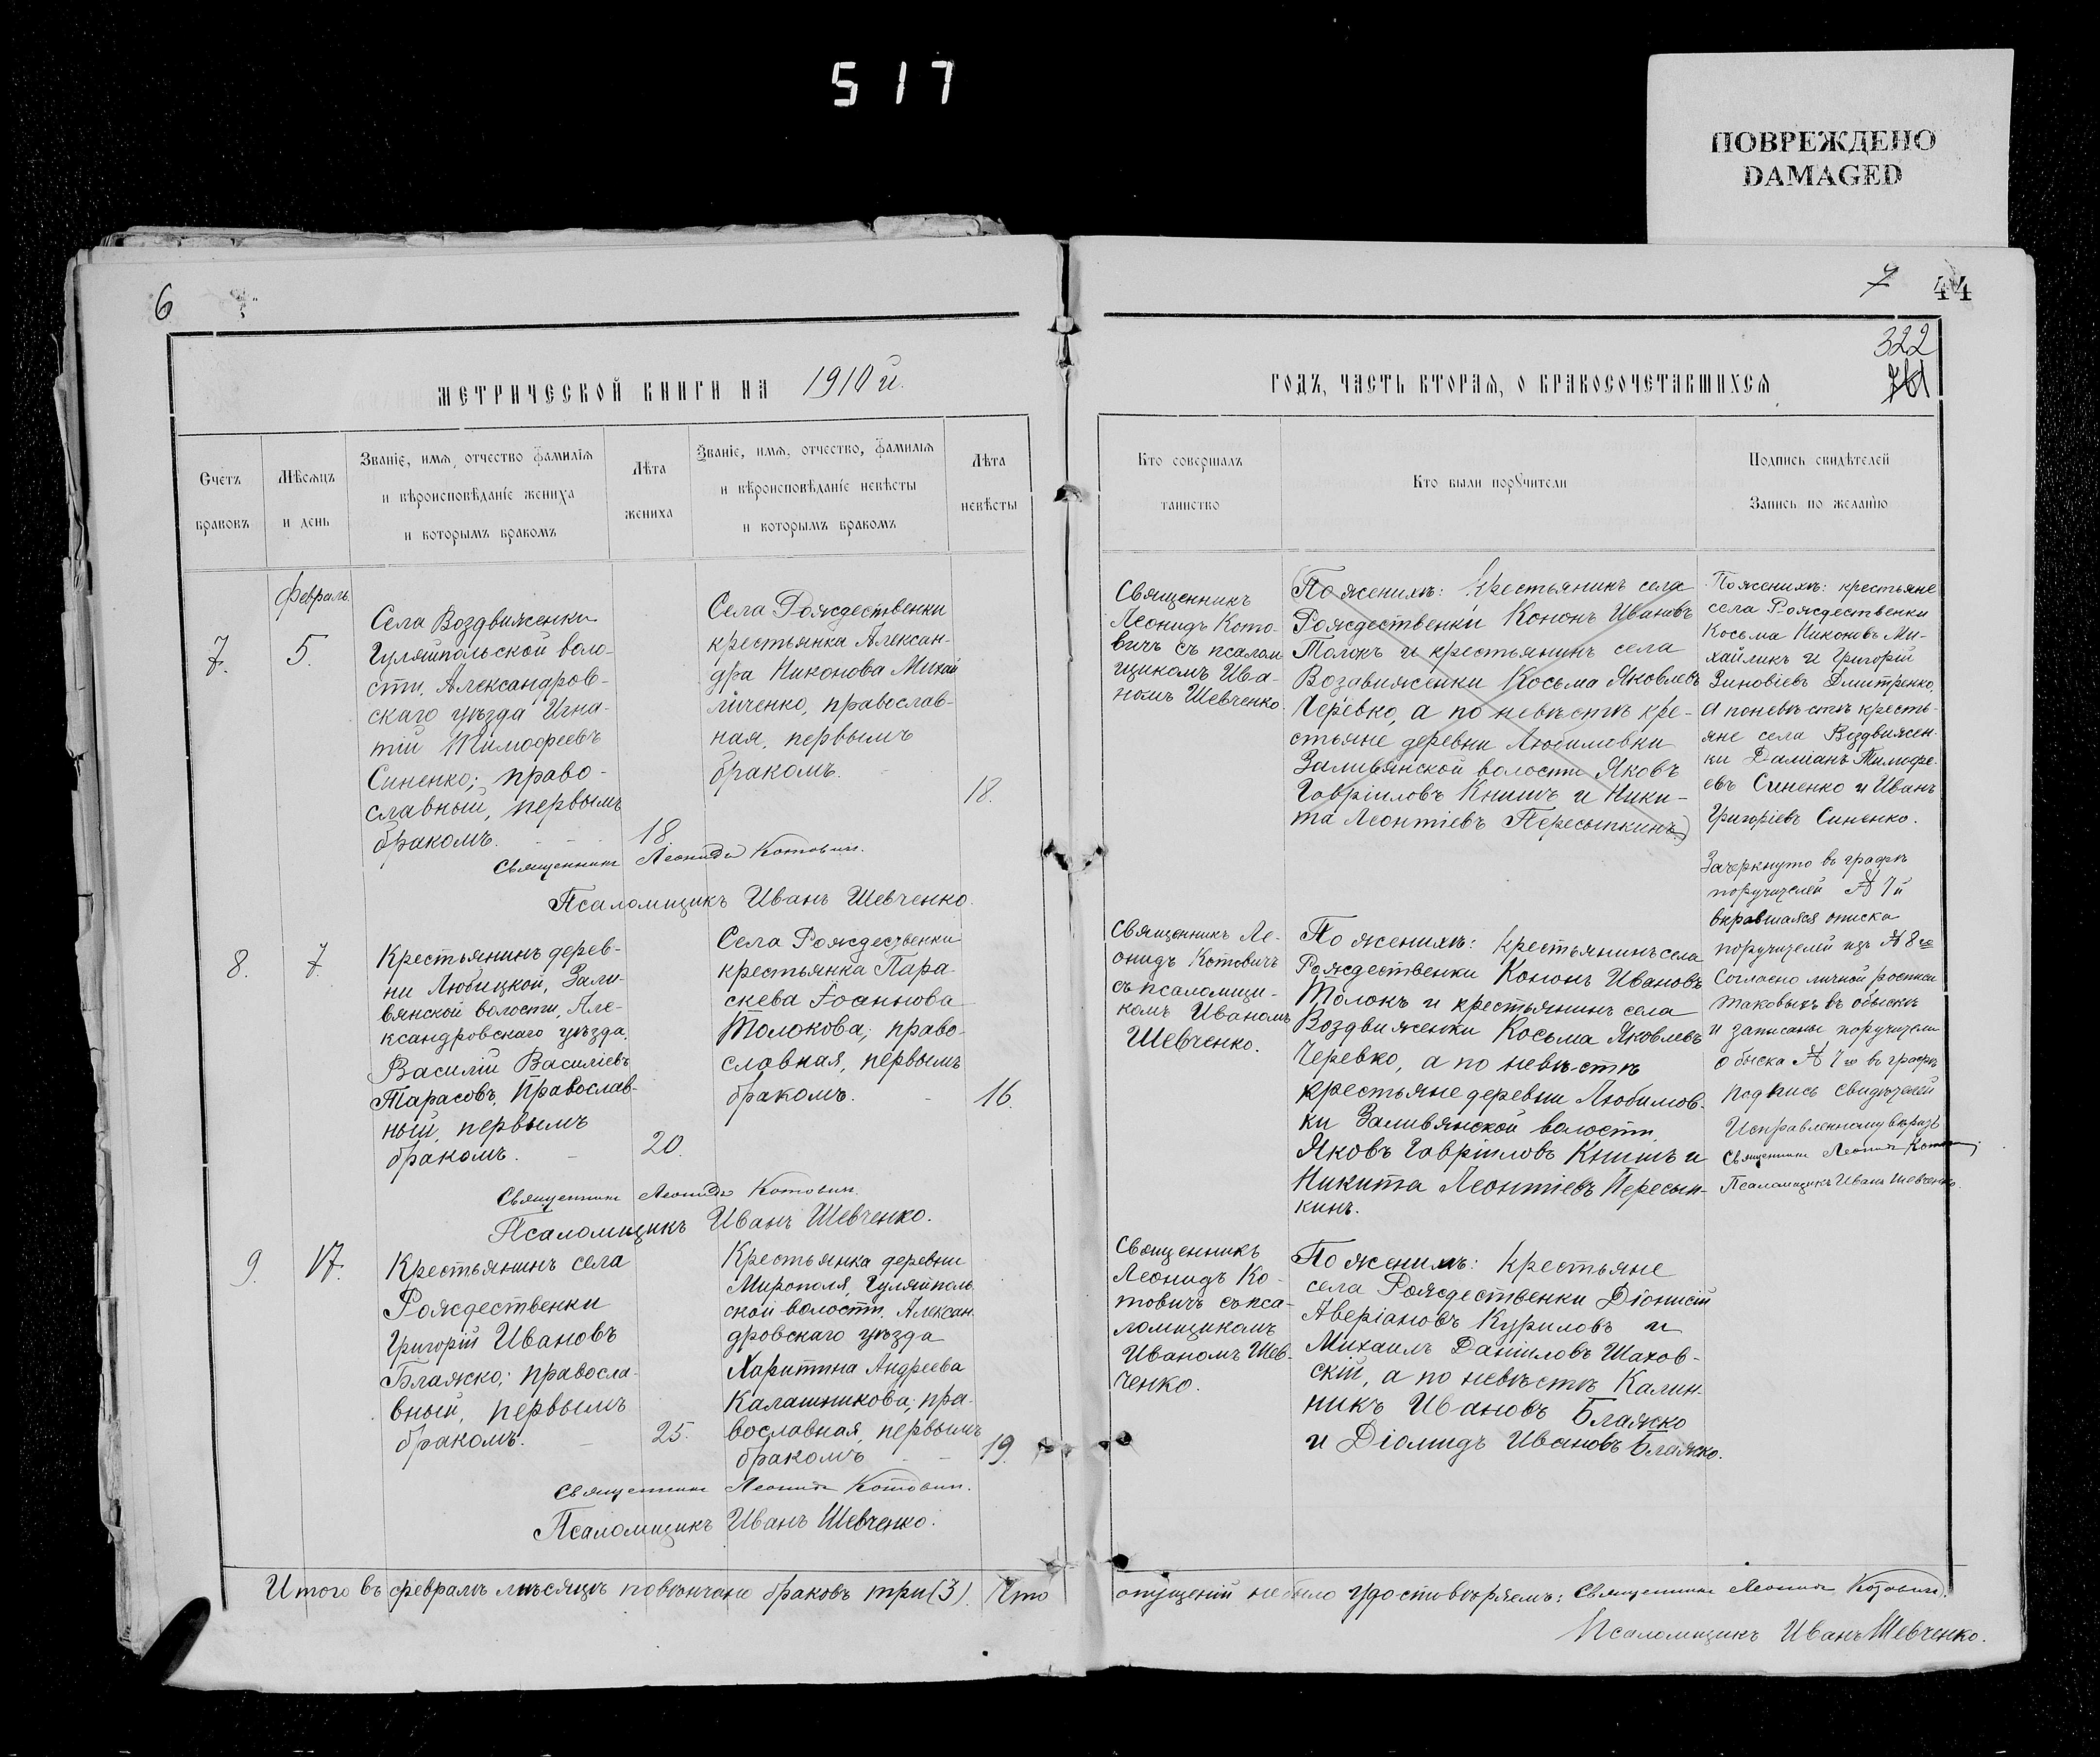 517
ПОВРЕЖДЕНО
DAMAGED
6
7
44
322
МЕТРИЧЕСКОЙ КНИГИ НА 1910 й.
ГОДЪ, ЧАСТЬ ВТОРАЯ, О БРАКОСОЧЕТАВШИХСЯ
Счетъ
браковъ
Мѣсяцъ
и день
Званіе, имя, отчество фамилія
и вѣроисповѣданіе жениха
и которымъ бракомъ
Лѣта
жениха
Званіе, имя, отчество, фамилія
и вѣроисповѣданіе невѣсты
и которымъ бракомъ
Лѣта
невѣсты
Кто совершалъ
таинство
Кто были поручители
Подпись свидѣтелей
Запись по желанію
7.
Февраль.
5.
Села Воздвиженки
Гуляйпольской воло-
сти, Александров-
скаго уѣзда Игна-
тій Тимофеевъ
Синенко; право-
славный, первымъ
бракомъ.
18.
Села Рождественки
крестьянка Алексан-
дра Никонова Михай
личенко, православ-
ная, первымъ
бракомъ.
18.
Священникъ Леонидъ Котовичъ.
Псаломщикъ Иванъ Шевченко.
Священникъ
Леонидъ Кото-
вичъ съ псалом
щикомъ Ива-
номъ Шевченко.
По женихѣ: крестьянинъ села
Рождественки Кононъ Ивановъ
Толокъ и крестьянинъ села
Воздвиженки Косьма Яковлевъ
Черевко, а по невѣстѣ кре-
стьяне деревни Любимовки
Заливянской волости Яковъ
Гавріиловъ Книшъ и Ники-
та Леонтіевъ Пересыпкинъ
По женихѣ: крестьяне
села Рождественки
Косьма Никоновъ Ми-
хайликъ и Григорій
Зиновіевъ Дмитренко,
а по невѣстѣ кресть-
яне села Воздвижен-
ки Даміанъ Тимофе-
евъ Синенко и Иванъ
Григоріевъ Синенко.
Зачеркнуто въ графѣ
поручителей № 7й
вкравшаяся описка
поручителей изъ № 8го
Согласно личной росписи
таковыхъ въ обыскѣ
и записаны поручители
обыска № 7го въ графѣ
подпись свидѣтелей
Исправленному вѣрить
Священникъ Леонидъ Котовичъ
Псаломщикъ Иванъ Шевченко.
8.
7.
Крестьянинъ дерев-
ни Любицкой, Зали-
вянской волости, Але-
ксандровскаго уѣзда,
Василій Василіевъ
Тарасовъ, православ-
ный, первымъ
бракомъ.
20.
Села Рождественки
крестьянка Пара-
скева Іоаннова
Толокова; право-
славная, первымъ
бракомъ.
16.
Священникъ Леонидъ Котовичъ.
Псаломщикъ Иванъ Шевченко.
Священникъ Ле-
онидъ Котовичъ
съ псаломщи-
комъ Иваномъ
Шевченко.
По женихѣ: крестьянинъ села
Рождественки Кононъ Ивановъ
Толокъ и крестьянинъ села
Воздвиженки Косьма Яковлевъ
Черевко, а по невѣстѣ
крестьяне деревни Любимов-
ки Заливянской волости,
Яковъ Гавріиловъ Книшъ и
Никита Леонтіевъ Пересып-
кинъ.
9.
17.
Крестьянинъ села
Рождественки
Григорій Ивановъ
Блажко; правосла-
вный, первымъ
бракомъ.
25.
Крестьянка деревни
Мирополя, Гуляйполь
ской волости, Алексан-
дровскаго уѣзда
Харитина Андреева
Калашникова; пра-
вославная, первымъ
бракомъ
19.
Священникъ Леонидъ Котовичъ.
Псаломщикъ Иванъ Шевченко.
Священникъ
Леонидъ Ко-
товичъ съ пса-
ломщикомъ
Иваномъ Шев-
ченко.
По женихѣ: крестьяне
села Рождественки Діонисій
Аверіановъ Куриловъ и
Михаилъ Даниловъ Шахов-
скій, а по невѣстѣ Калин-
никъ Ивановъ Блажко
и Діомидъ Ивановъ Блажко.
Итого въ февралѣ мѣсяцѣ повѣнчано браковъ три (3). Что
опущеній не было удостовѣряемъ: Священникъ Леонидъ Котовичъ.
Псаломщикъ Иванъ Шевченко.